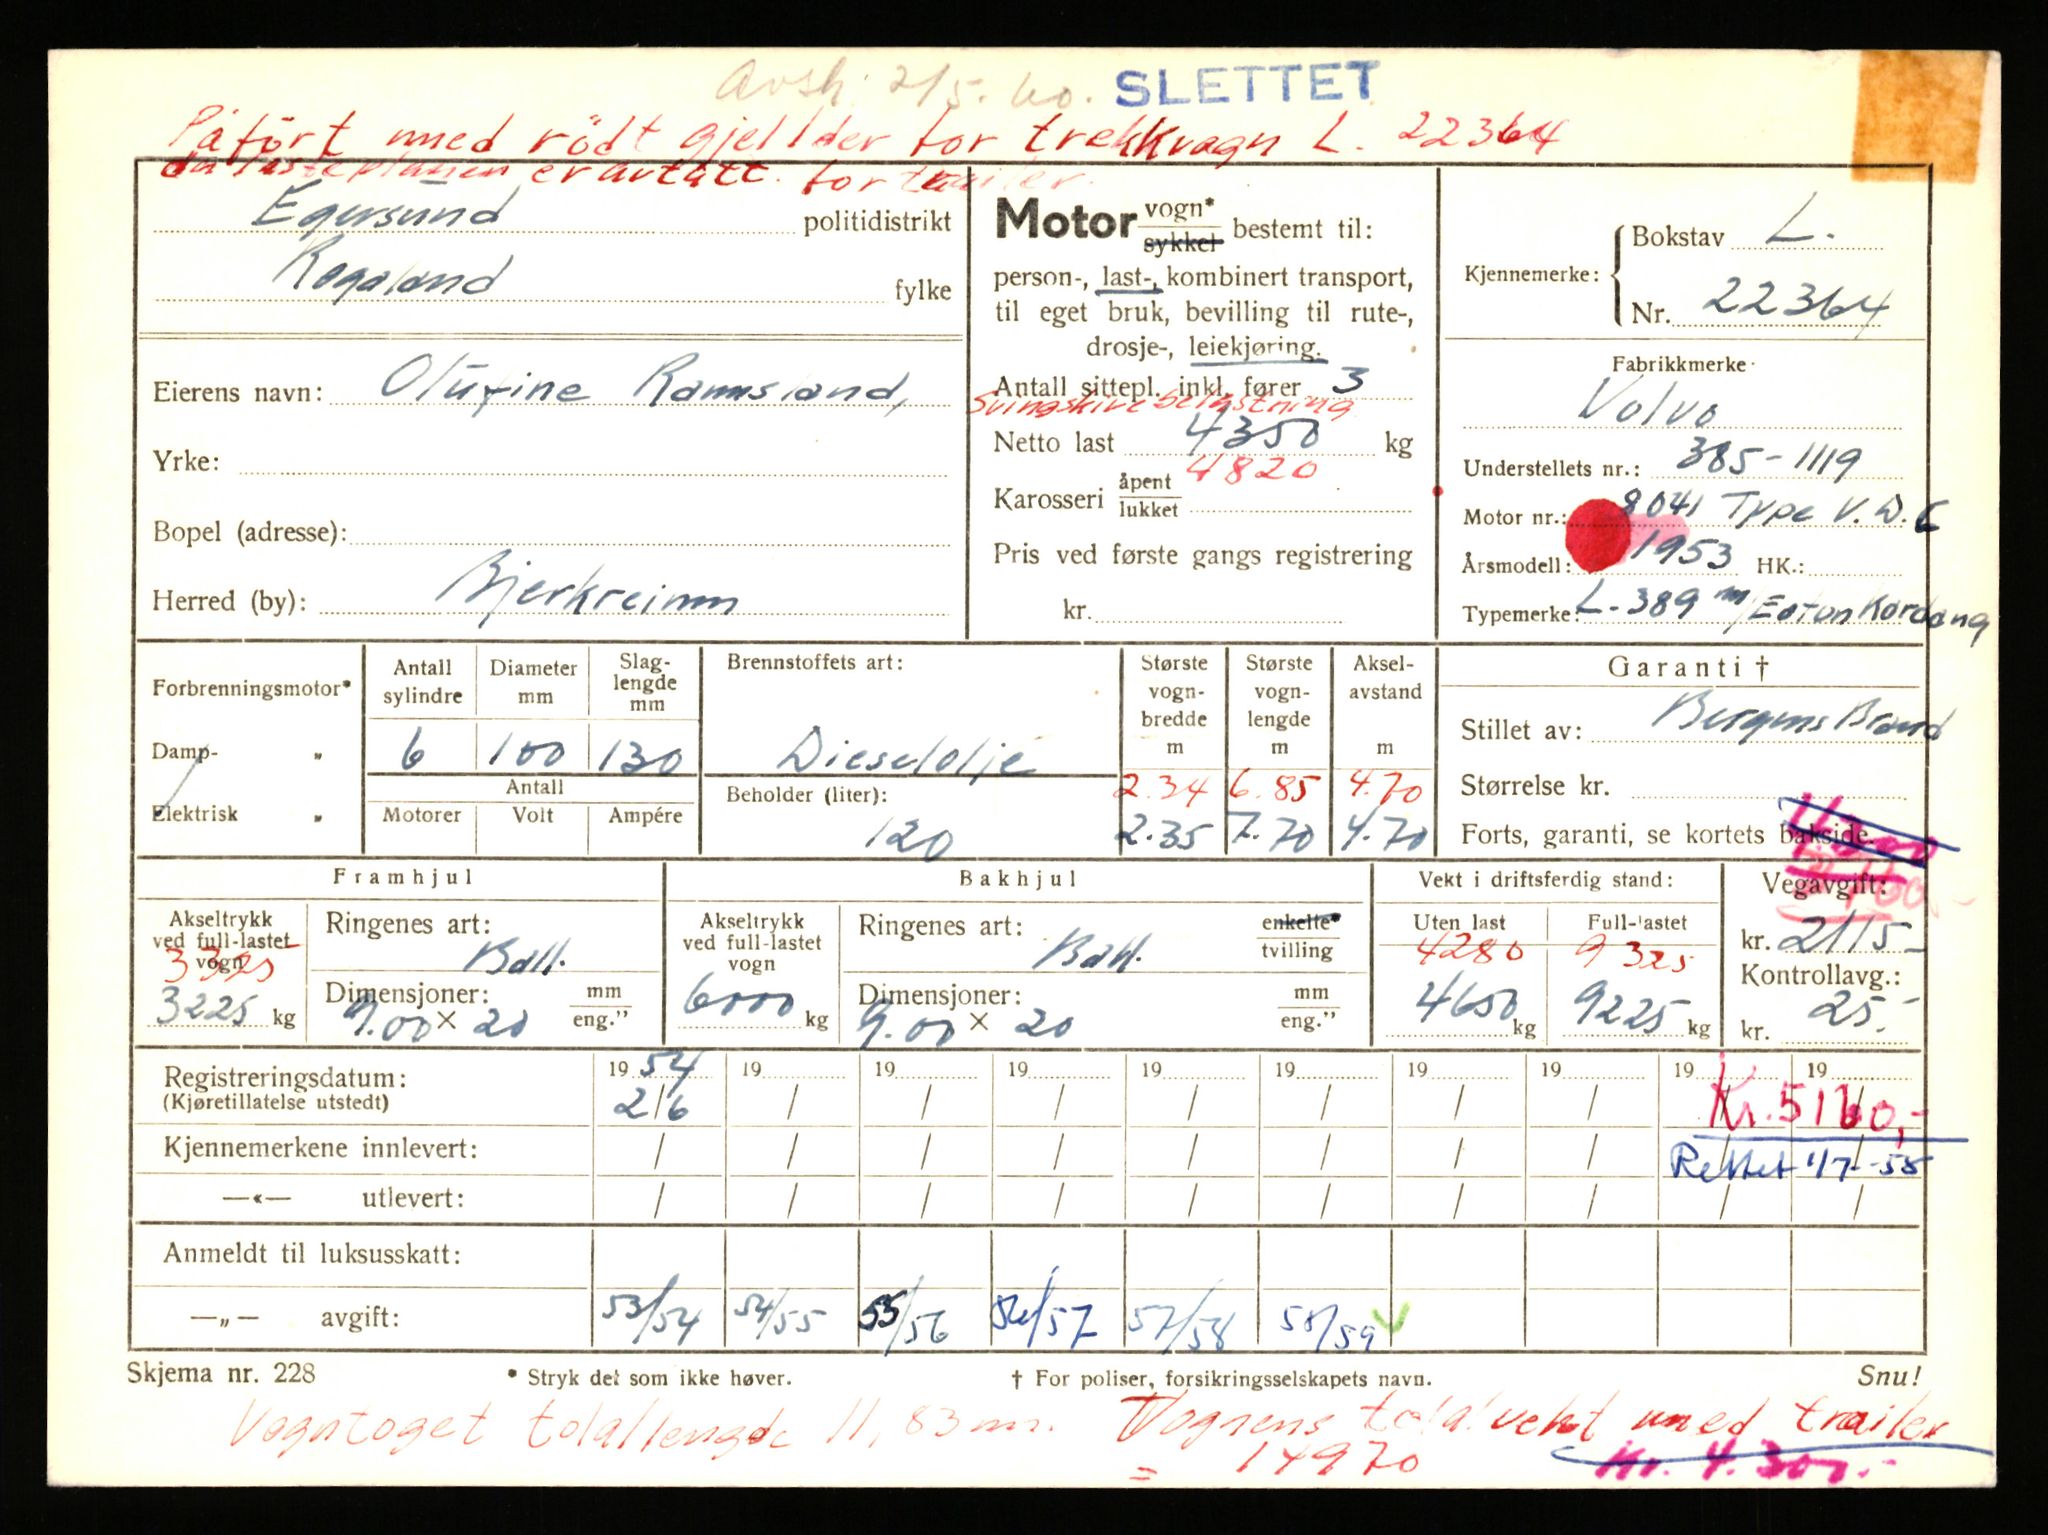 Avsk. 2/5. 60. SLETTET
Påført med rödt gjellder for trekkvogn L. 22364
da lasteplanen er avtatt. for trailer.
Egersund politidistrikt
Rogaland fylke
Eierens navn: Olufine Ramsland,
Yrke:
Bopel (adresse):
Herred (by): Bjerkreimm
Motor vogn* sykkel bestemt til:
person-, last-, kombinert transport,
til eget bruk, bevilling til rute-,
drosje-, leiekjøring.
Antall sittepl. inkl. fører 3
Svingskivebelastning
Netto last 4350 kg
4820
Karosseri åpent lukket
Pris ved første gangs registrering
kr.
Kjennemerke: Bokstav L.
Nr. 22364
Fabrikkmerke
Volvo
Understellets nr.: 385-1119
Motor nr.: 8041 Type V.D.C
Årsmodell: 1953 HK.:
Typemerke: L-389 m/Eaton Kardang
Forbrenningsmotor*
Damp- "
Elektrisk "
Antall sylindre 6
Diameter mm 100
Slag-lengde mm 130
Antall
Motorer Volt Ampére
Brennstoffets art:
Dieselolje
Beholder (liter):
120
Største vogn-bredde m 2.34 2.35
Største vogn-lengde m 6.85 7.70
Aksel-avstand m 4.70 4.70
Garanti †
Stillet av: Bergens Brand
Størrelse kr.
Forts, garanti, se kortets bakside.
Framhjul
Akseltrykk ved full-lastet vogn
3325
3225 kg
Ringenes art:
Ball.
Dimensjoner: mm eng."
9.00 × 20
Bakhjul
Akseltrykk ved full-lastet vogn
6000 kg
Ringenes art: enkelte* tvilling
Ball.
Dimensjoner: mm eng."
9.00 × 20
Vekt i driftsferdig stand:
Uten last Full-lastet
4280 9325
4650 kg 9225 kg
Vegavgift:
kr. 2115-
Kontrollavg.:
kr. 25.-
Registreringsdatum: 19 54 19 19 19 19 19 19 19 19 19
(Kjøretillatelse utstedt) 2/6 / / / / / / / / Kr. 5160,-
Kjennemerkene innlevert: / / / / / / / / Rettet 1/7-58
—«— utlevert: / / / / / / / / / /
Anmeldt til luksusskatt:
—„— avgift: 53/54 54/55 55/56 56/57 57/58 58/59
Skjema nr. 228 * Stryk det som ikke høver. † For poliser, forsikringsselskapets navn. Snu!
Vogntoget totallengde 11,83 m. Vognens total vekt med trailer
= 14970 Kr. 4.300.-